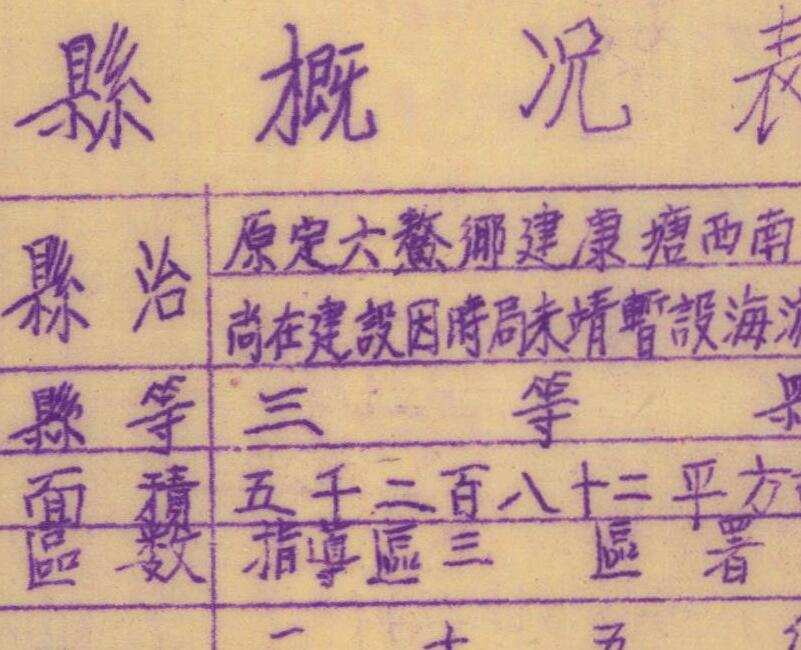 縣概况表
縣治 原定六鰲鄉建康塘西南
尚在建設因時局未靖暫設海
縣等 三等
面積 五千二百八十二平方
區数 指導區三 區署
一十五